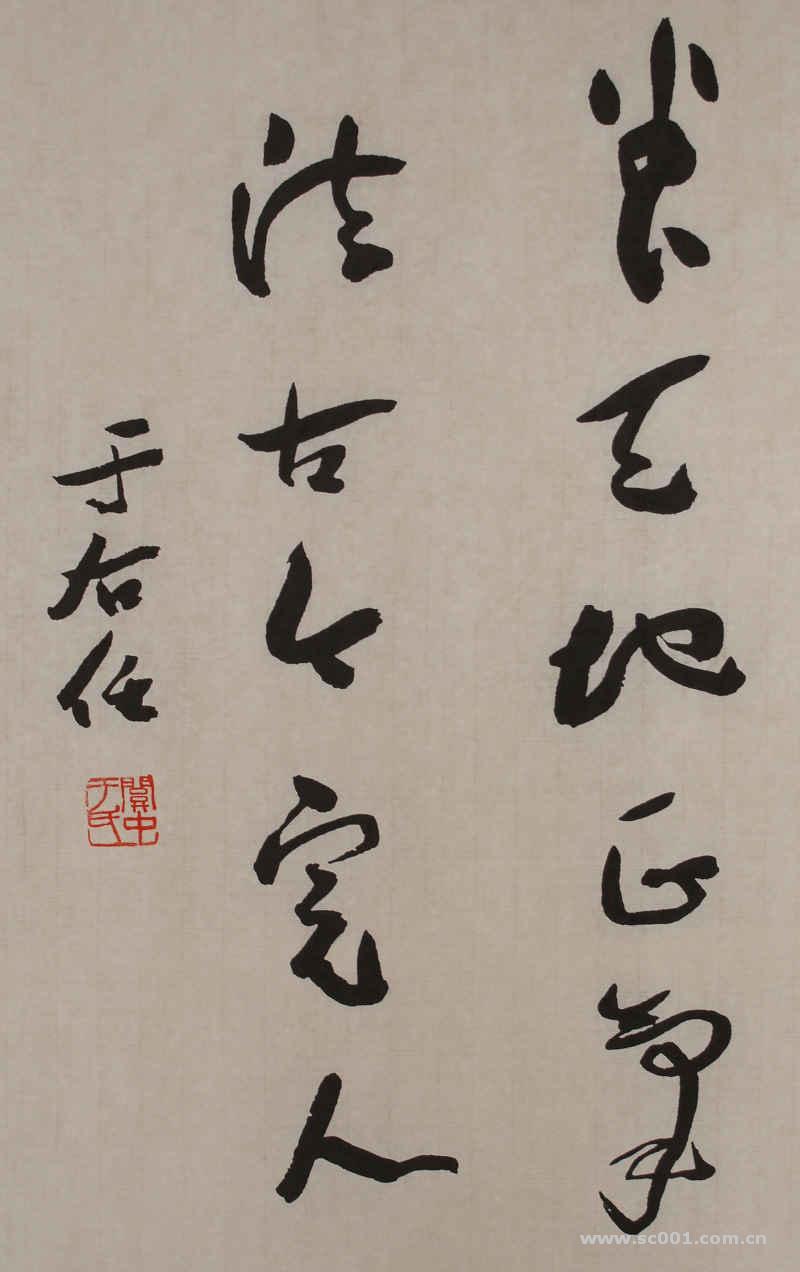 养天地正氣
法古今完人
于右任
關中于氏
www.sc001.com.cn